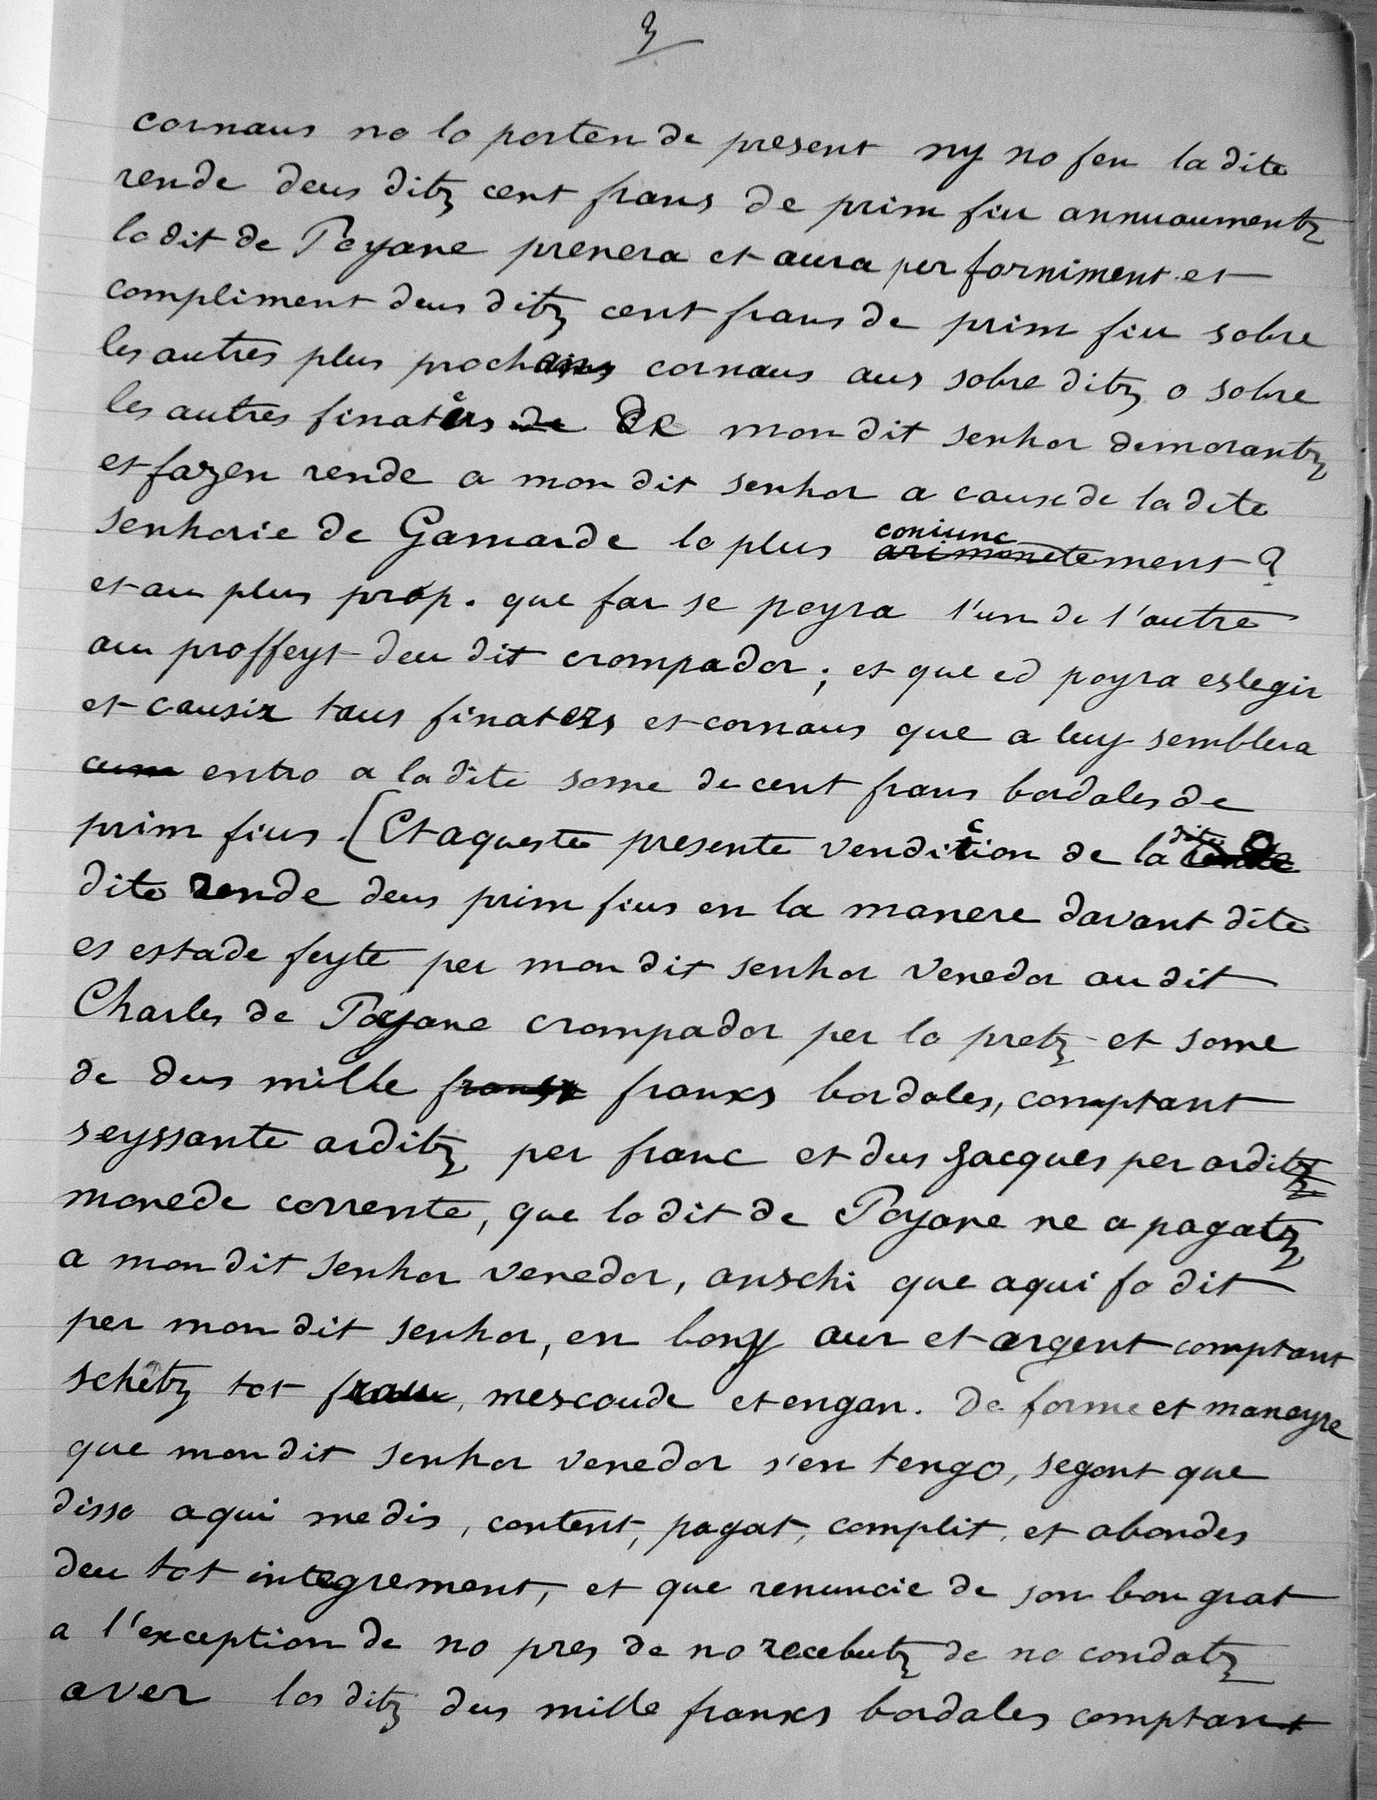 3
cornaus no lo porten de present ny no feu la dite
rende deus ditz cent frans de prim fiu annuaumentz
lo dit de Poyane prenera et aura per forniment et
compliment deus ditz cent frans de prim fiu sobre
les autres plus prochans cornaus aus sobre ditz o sobre
les autres finaters de mon dit senhor demorantz
et fazen rende a mon dit senhor a cause de la dite
senhorie de Gamarde lo plus coniunctement ?
et au plus prop. que far se poyra l'un de l'autre
au proffeyt deu dit crompador ; et que ed poyra eslegir
et causir taus finaters et cornaus que a luy semblera
entro a la dite some de cent frans bordales de
prim fius. [Et aqueste presente vendicion de la dite
dite rende deus prim fius en la manere davant dite
es estade feyte per mon dit senhor venedor au dit
Charles de Poyane crompador per lo pretz et some
de dus mille franxs bordales, comptant
seyssante arditz per franc et dus Jacques per arditz
monede corrente, que lo dit de Poyane ne a pagatz
a mon dit senhor venedor, anschi que aqui fo dit
per mon dit senhor, en bony aur et argent comptant
schetz tot frau, mescaude et engan. De forme et maneyre
que mon dit senhor venedor s'en tengo, segont que
disso aqui medis, content, pagat, complit, et abondes
deu tot integrement, et que renuncie de son bon grat
a l'exception de no pres de no recebutz de no condatz
aver los ditz dus mille franxs bordales comptant